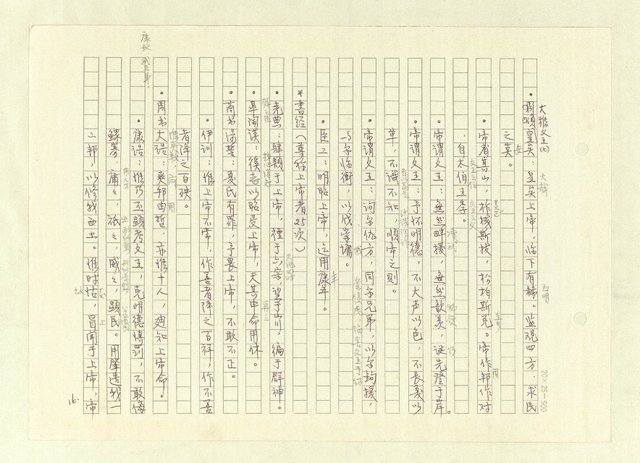 大雅文王的
•皇矣：皇矣上帝，臨下有赫。監視四方，求民
之莫。
•帝省其山，柞棫斯拔，松柏斯兌。帝作邦作對
，自大伯王季。
•帝謂文王：無然畔援，無然歆羨，誕先登于岸。
•帝謂文王：予怀明德，不大声以色，不長夏以
革，不識不知，順帝之則。
•帝谓文王：詢尔仇方，同尔兄弟，以尔鈎援，
与尔临衝，以伐崇墉。
•臣工：明昭上帝，迄用康年。
*書经（尊称上帝者25次）
•堯典：肆類于上帝，禋于六宗，望于山川，徧于群神。
•皐陶谟：徯志以昭受上帝，天其申命用休。
•商书湯誓：夏氏有罪，予畏上帝，不敢不正。
•伊訓：惟上帝不常，作善者降之百祥，作不善
者降之百殃。
•周书大诰：爽邦由哲，亦惟十人，迪知上帝命。
•康诰：惟乃丕顯考文王，克明德慎罰，不敢侮
鰥寡，庸庸，祇祇，威威，顯民。用肇造我一
二邦，以修我西土。惟时怙，冒聞于上帝，帝
16.
20×25=500